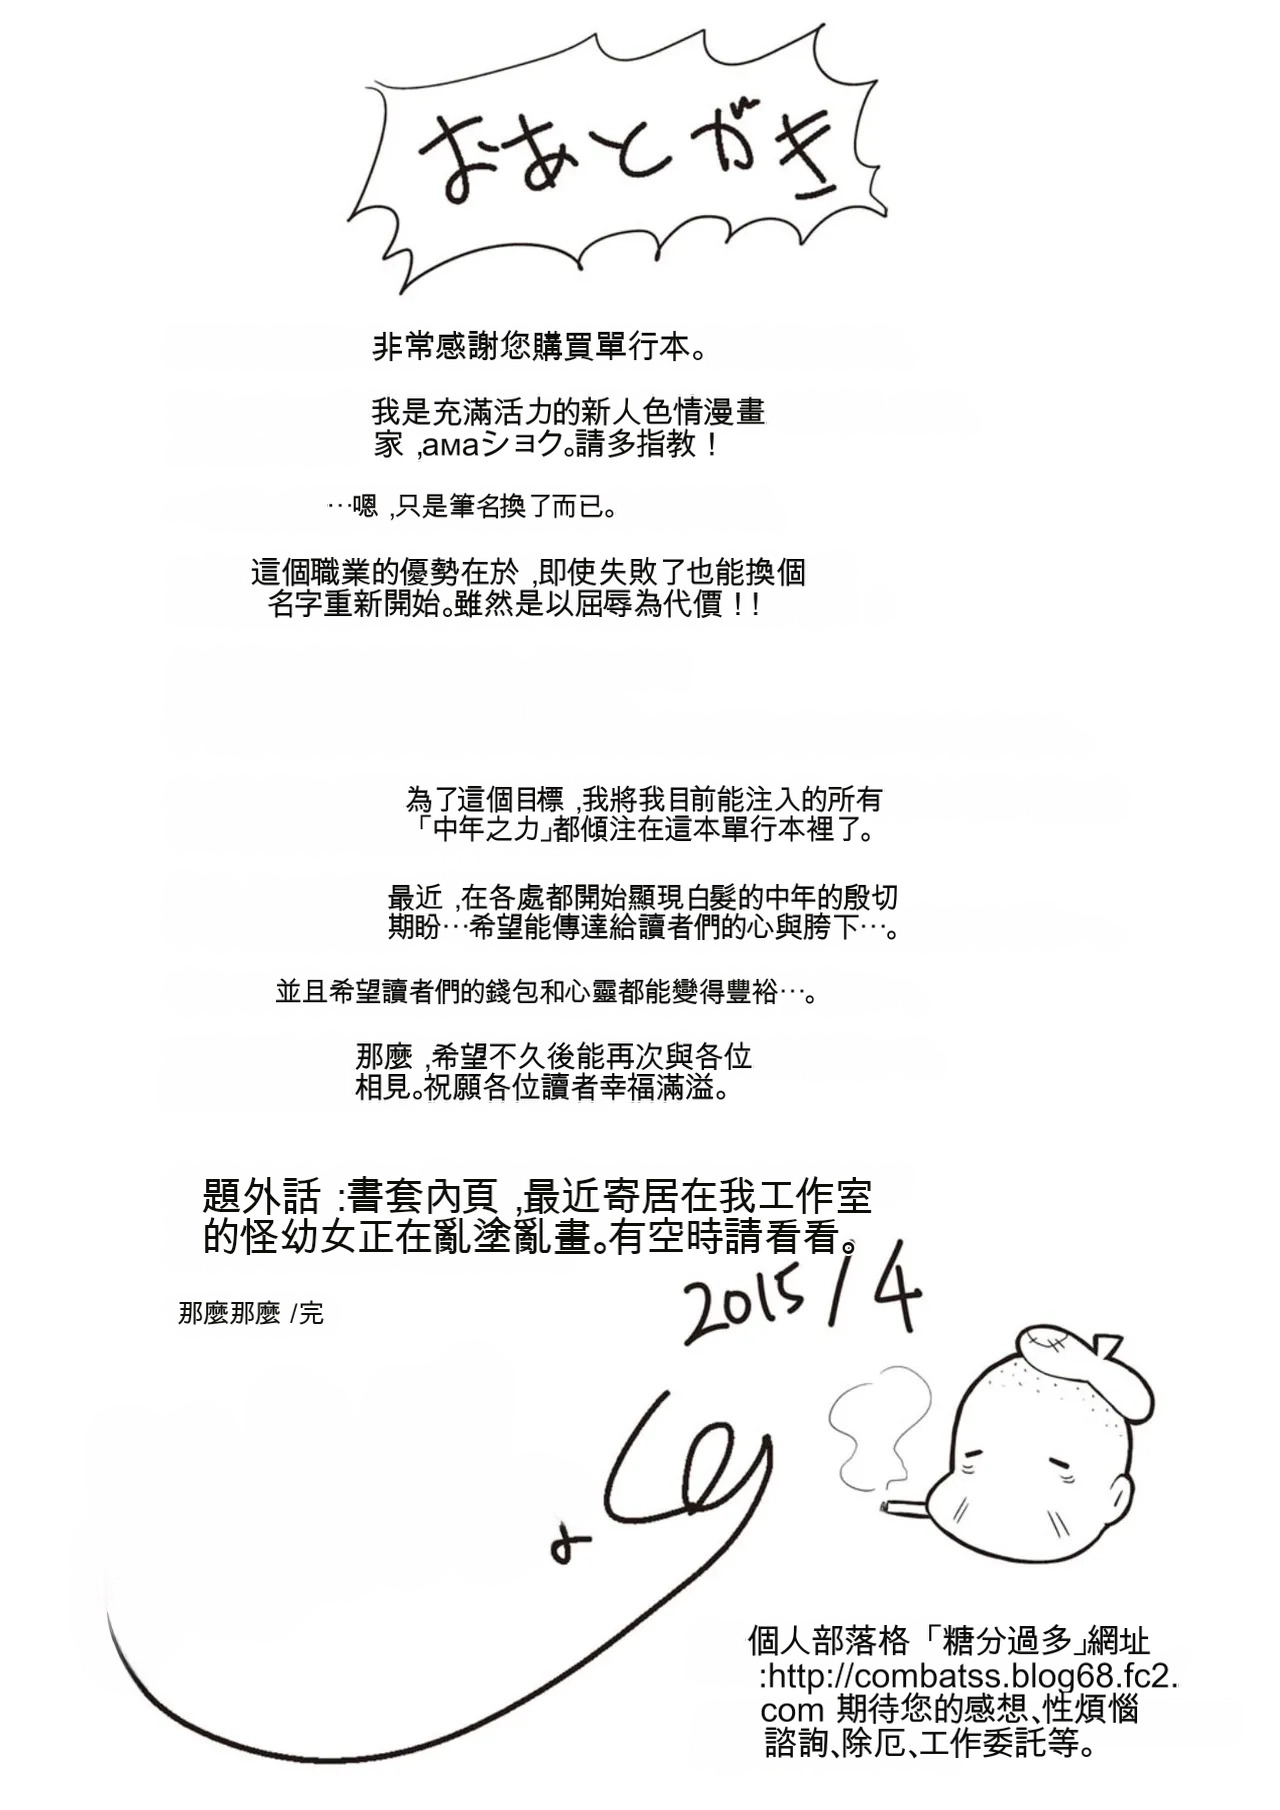 おあとがき
非常感謝您購買單行本。
我是充滿活力的新人色情漫畫
家,амаショク。請多指教!
…嗯,只是筆名換了而已。
這個職業的優勢在於,即使失敗了也能換個
名字重新開始。雖然是以屈辱為代價!!
為了這個目標,我將我目前能注入的所有
「中年之力」都傾注在這本單行本裡了。
最近,在各處都開始顯現白髮的中年的殷切
期盼…希望能傳達給讀者們的心與胯下…。
並且希望讀者們的錢包和心靈都能變得豐裕…。
那麼,希望不久後能再次與各位
相見。祝願各位讀者幸福滿溢。
題外話:書套內頁,最近寄居在我工作室
的怪幼女正在亂塗亂畫。有空時請看看。
2015/4
那麼那麼/完
個人部落格「糖分過多」網址
:http://combatss.blog68.fc2.
com 期待您的感想、性煩惱
諮詢、除厄、工作委託等。